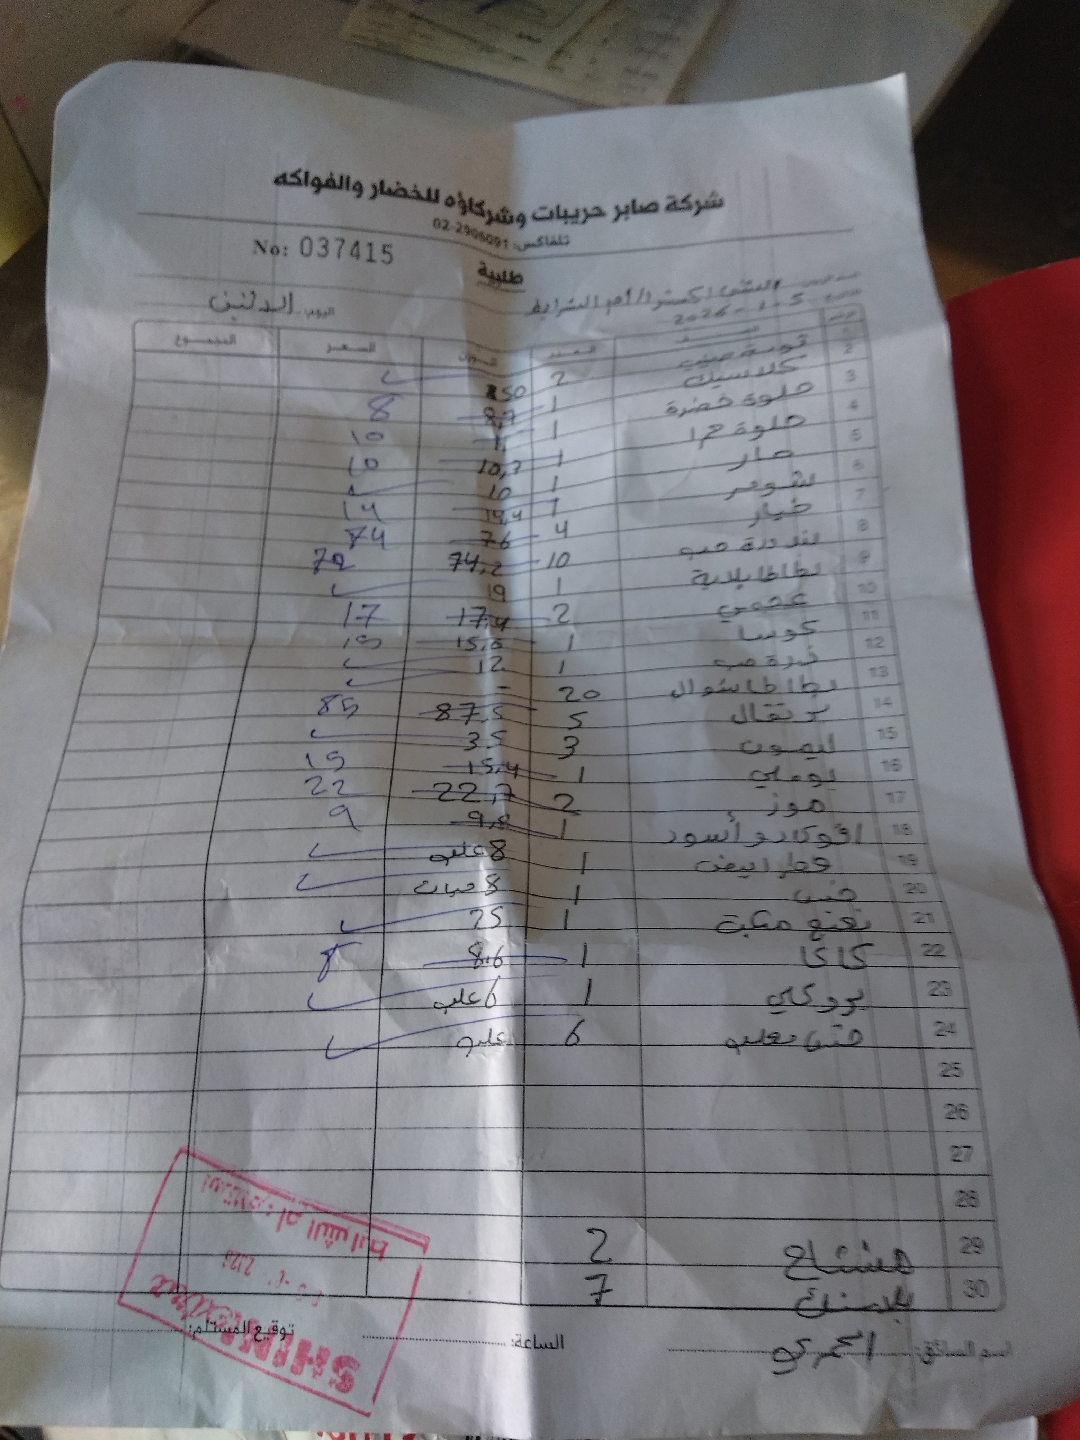 شركة صابر حريبات وشركاؤه للخضار والفواكه
تلفاكس: 02-2905091
No: 037415
طلبية
الشني اكسترا/ام الشرايط
2026-1-5
اليوم: الاثنين
العدد الوزن السعر المجموع
1 2 50
2 كلاسيك 1 8,7 8
3 حلوة خضرة 1 10
4 حلوة حمرا 1 10,2 10
5 حار 1 10
6 شومر 1 14,4 14
7 خيار 4 76 74
8 بندورة حب 10 74,2 72
9 بطاطا بلدية 1 19
10 عجمي 2 17,4 17
11 كوسا 1 15,6 15
12 ذرة حب 1 12
13 بطاطا شوال 20 -
14 برتقال 5 87,5 85
15 ليمون 3 35
16 بوملي 1 15,4 15
17 موز 2 22,7 22
18 افوكادو أسود 1 9,8 9
19 فطر ابيض 1 8 علب
20 خس 1 8 حبات
21 نعنع مكبة 1 25
22 كاكا 1 8,6 8
23 بروكلي 1 6 علب
24 خس بعلبه 6 علبه
25
26
27
28
29 مشتاح 2
30 بلاستك 7
اسم السائق: العمري الساعة: توقيع المستلم:
استلام ام الشرايط
SHINI extra